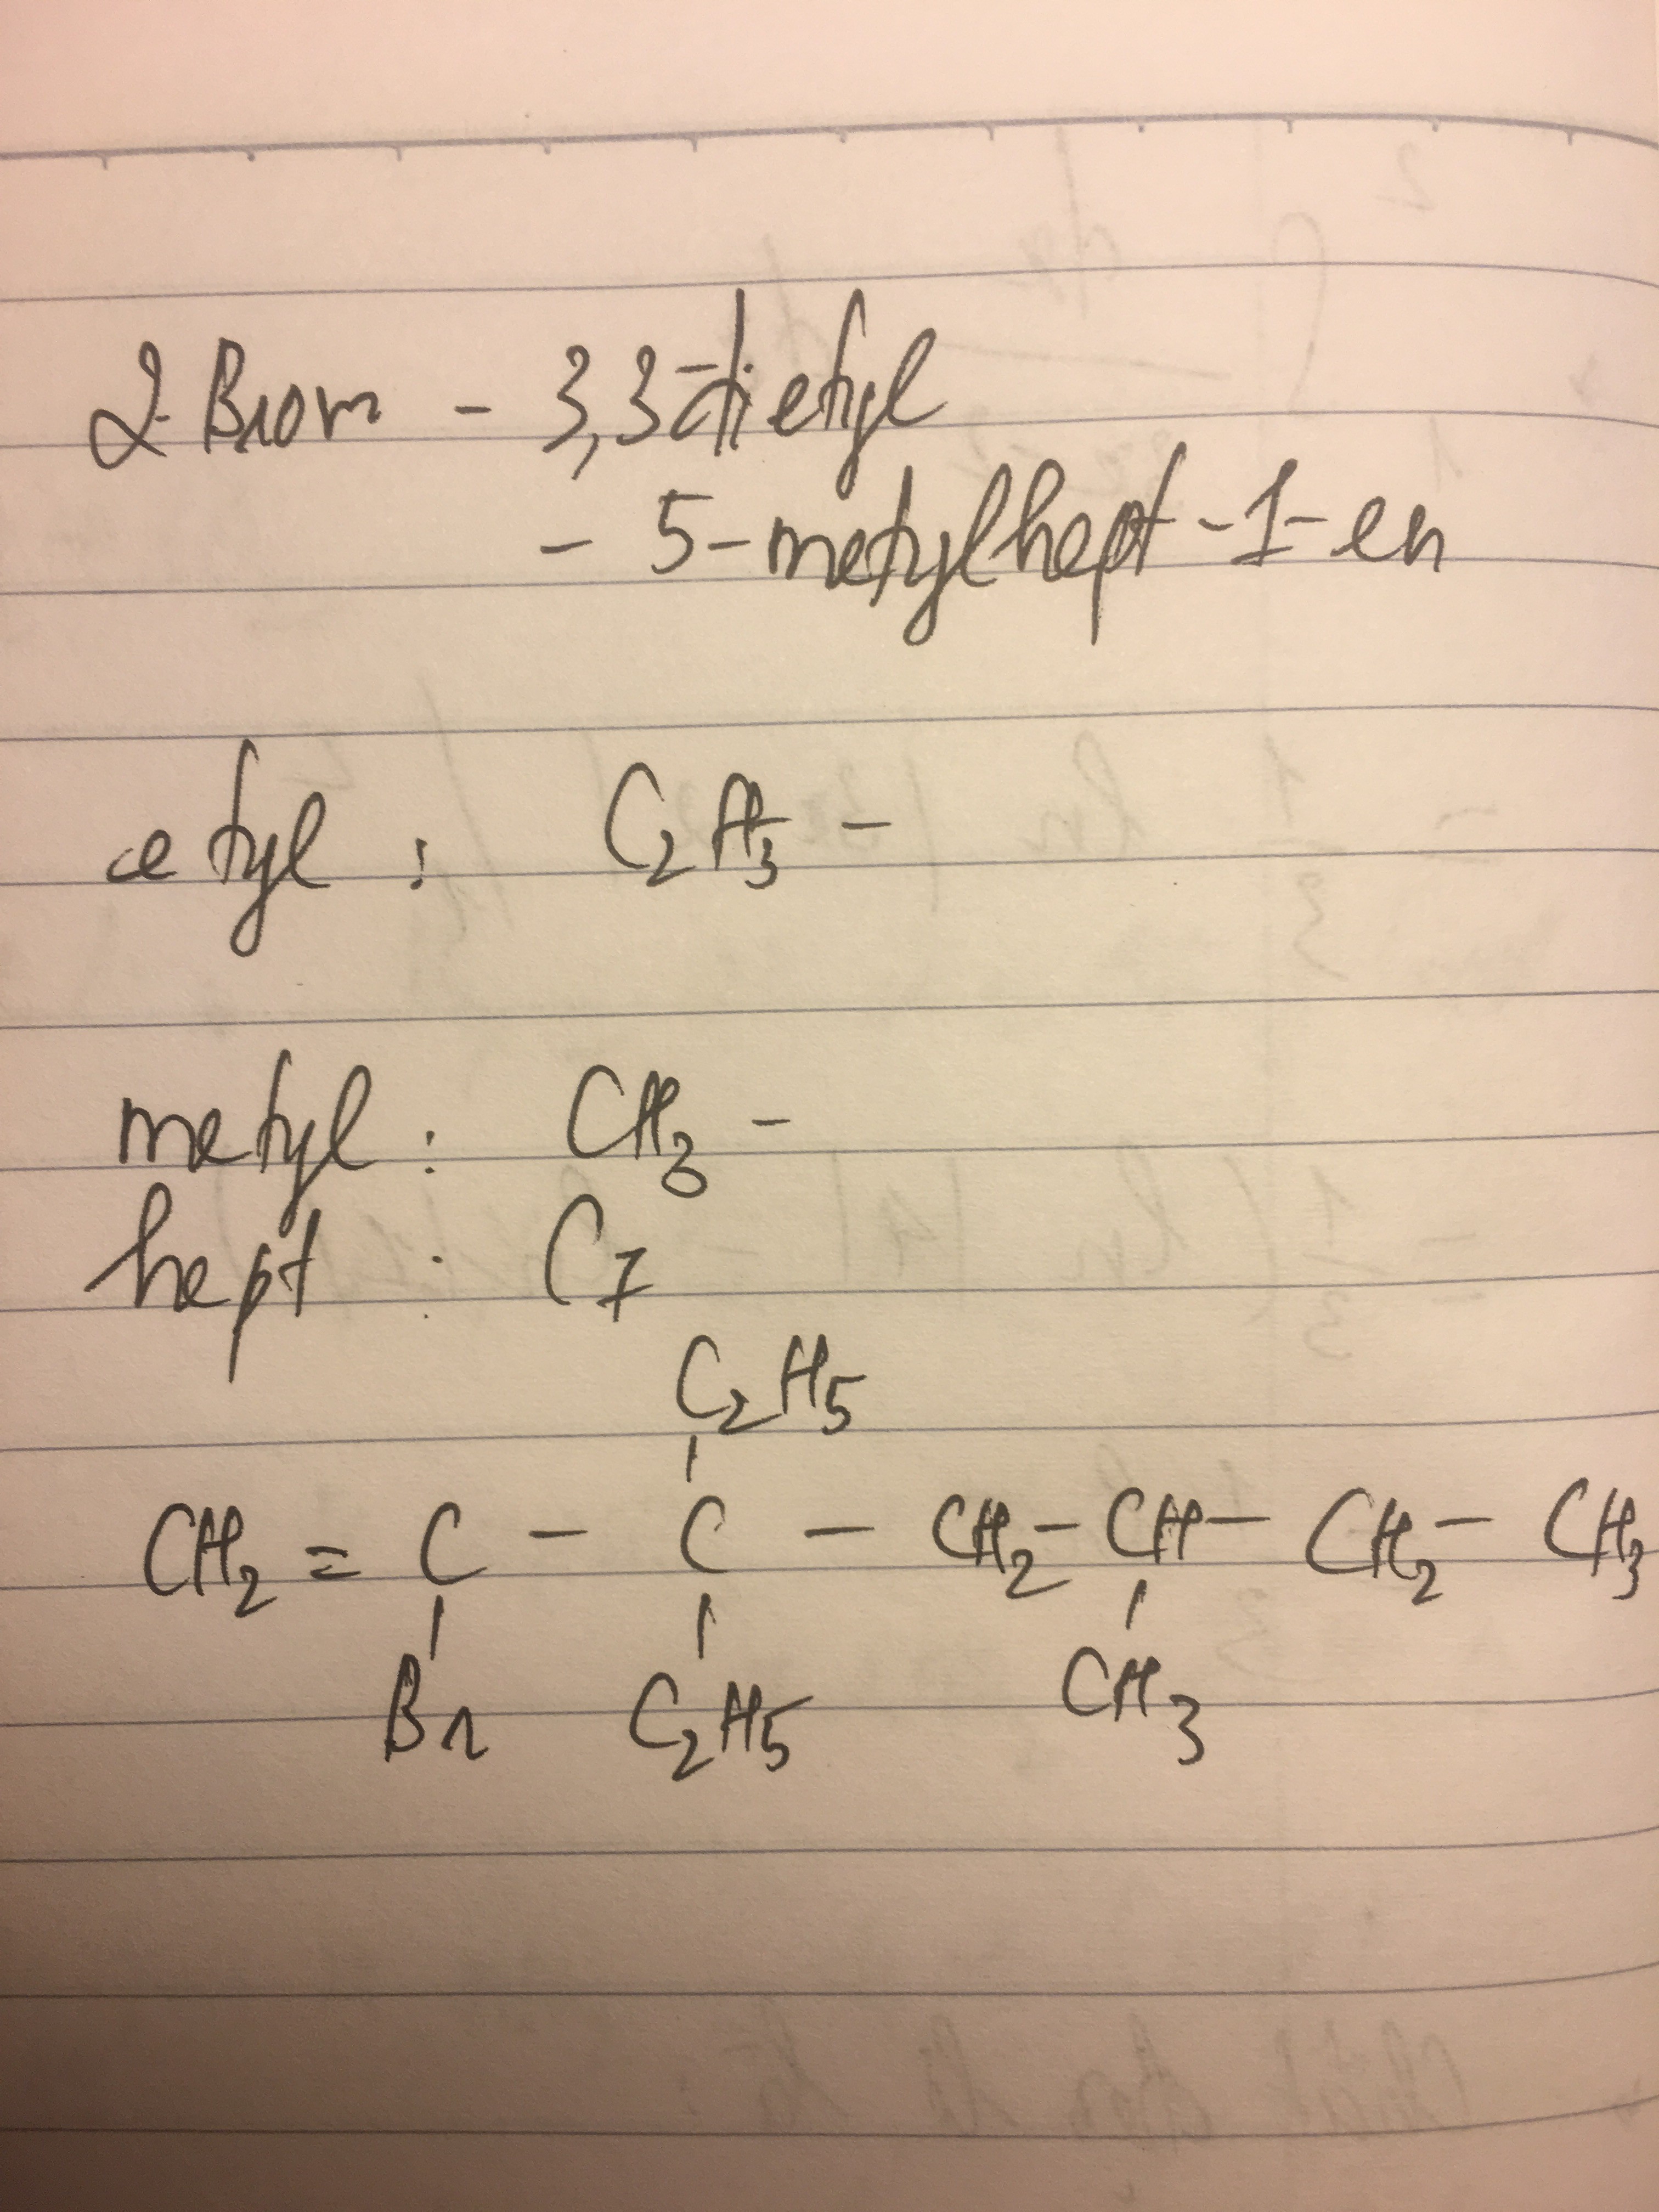 2-Brom - 3,3-đietyl
- 5-metylhept-1-en
etyl : C₂H₃ -
metyl : CH₃ -
hept : C₇
C₂H₅
CH₂ = C - C - CH₂ - CH - CH₂ - CH₃
Br C₂H₅ CH₃